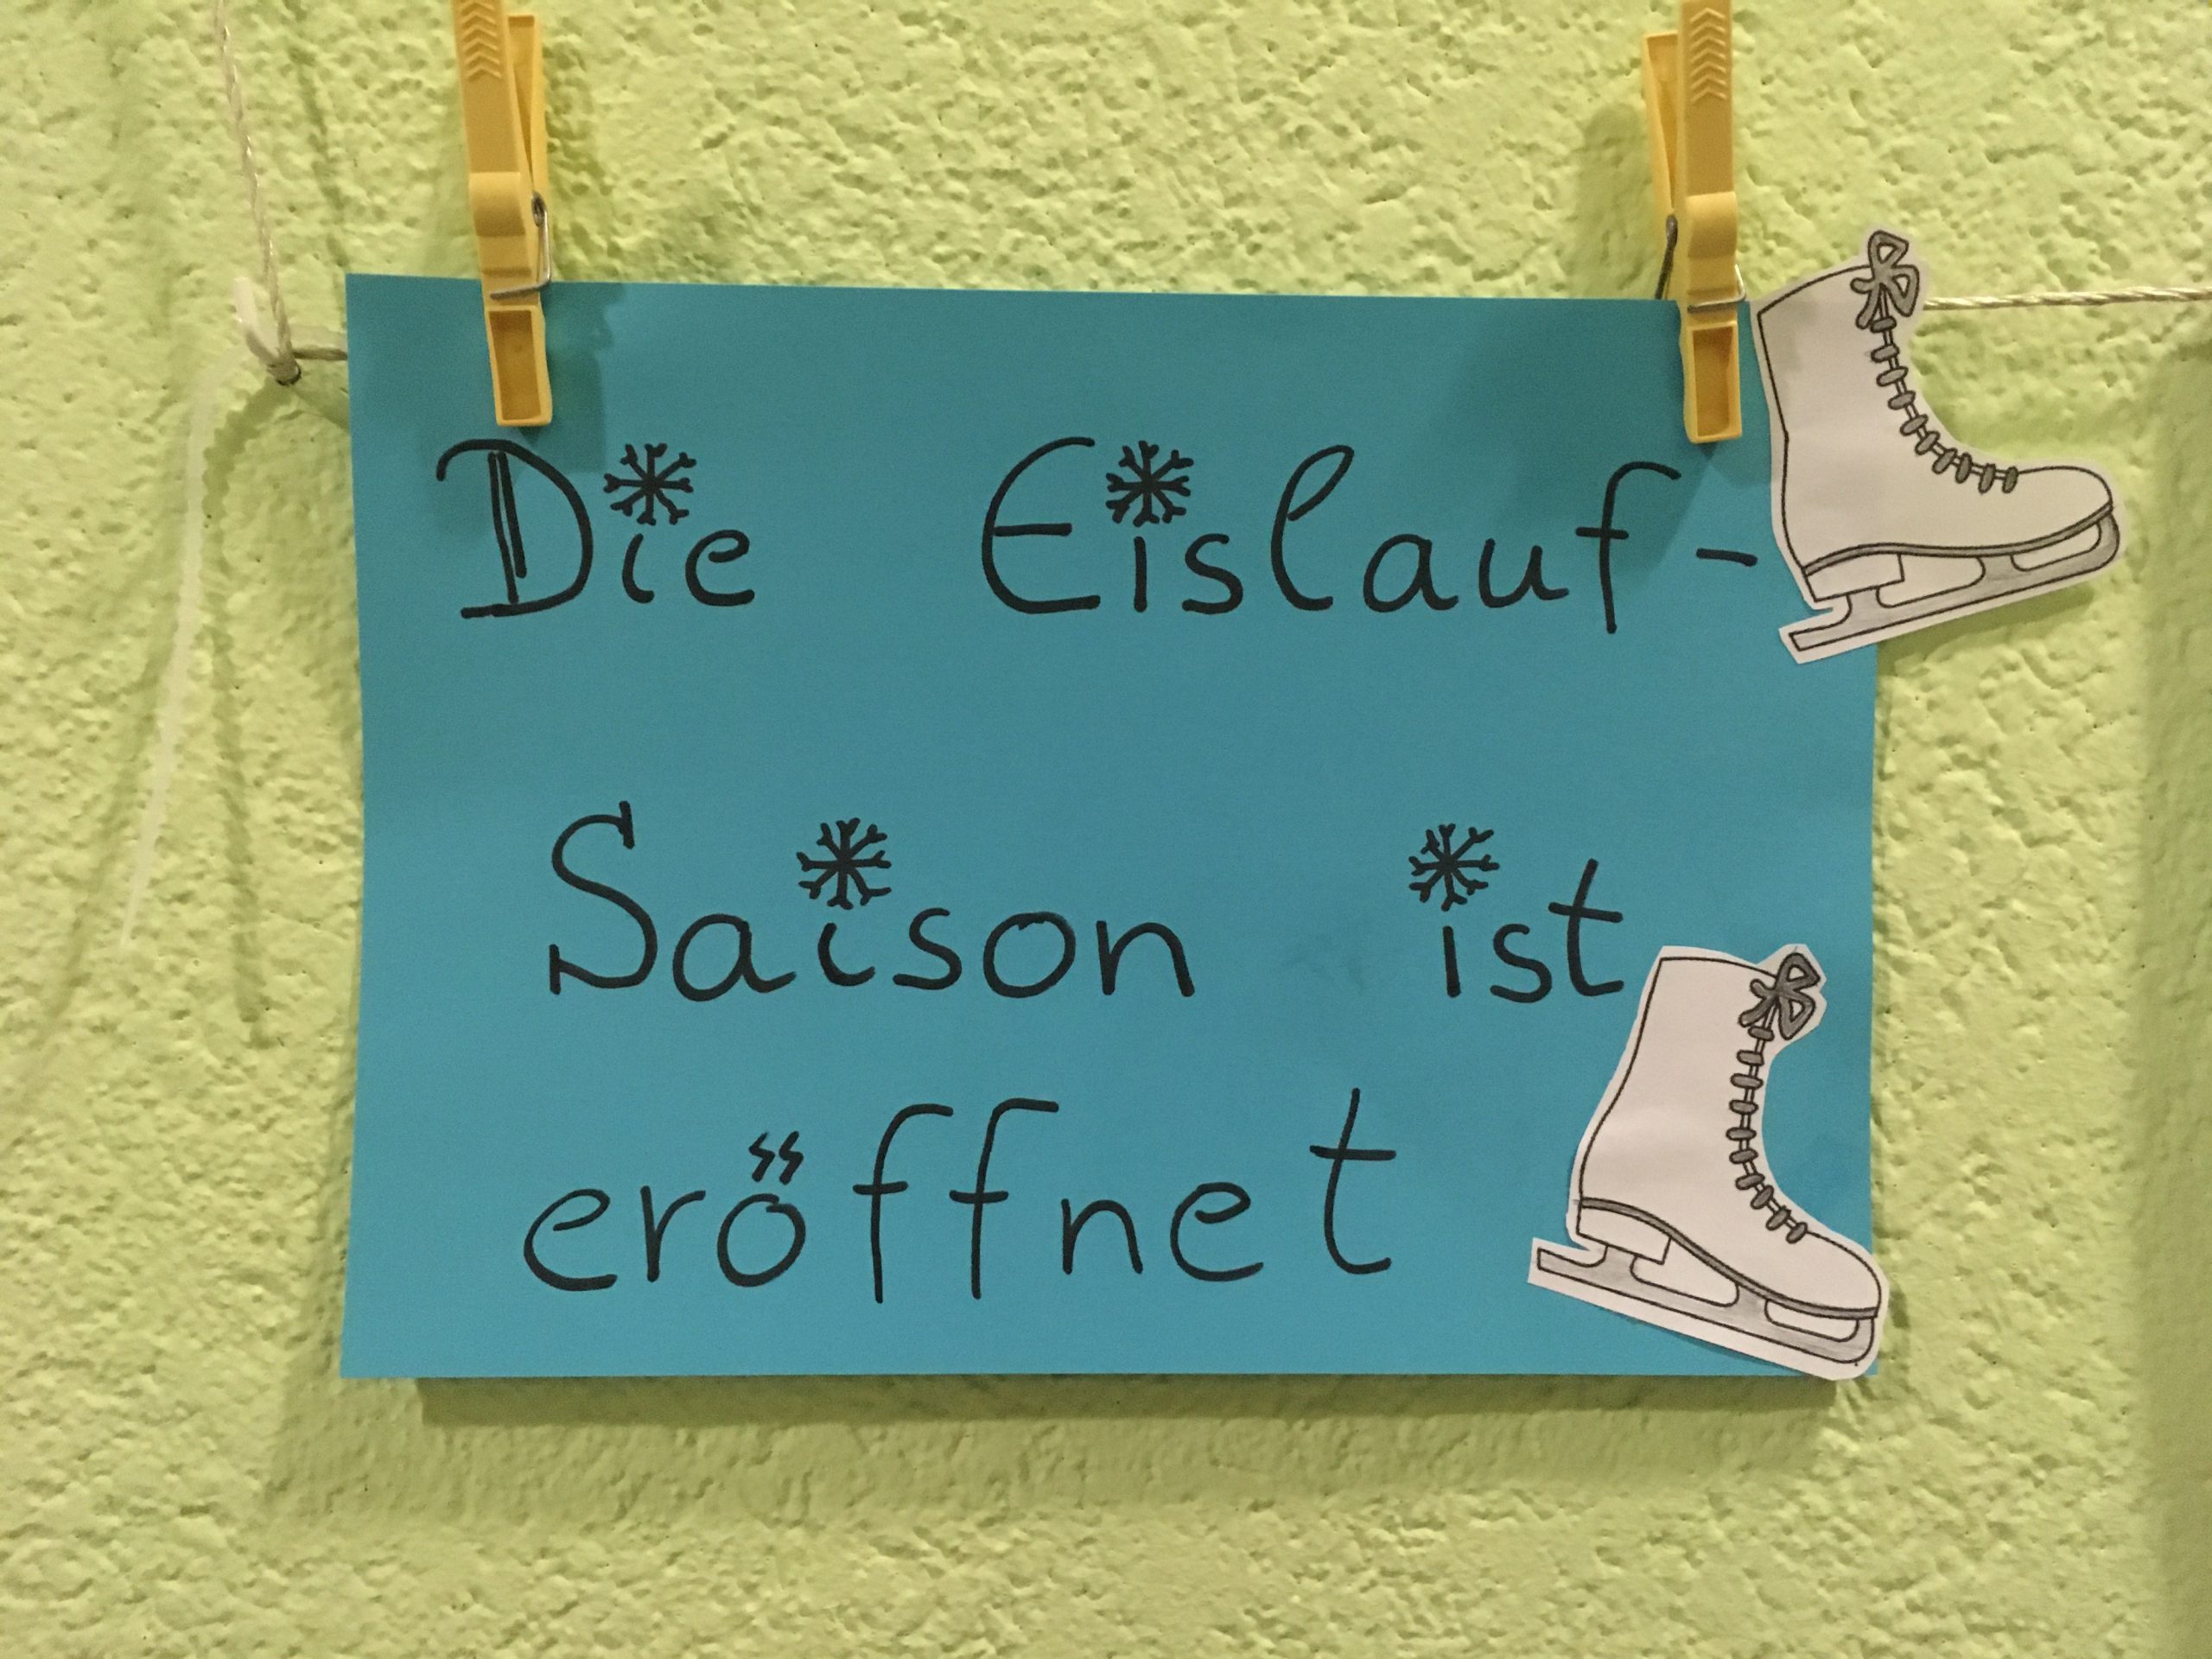 Die Eislauf-
Saison ist
eröffnet